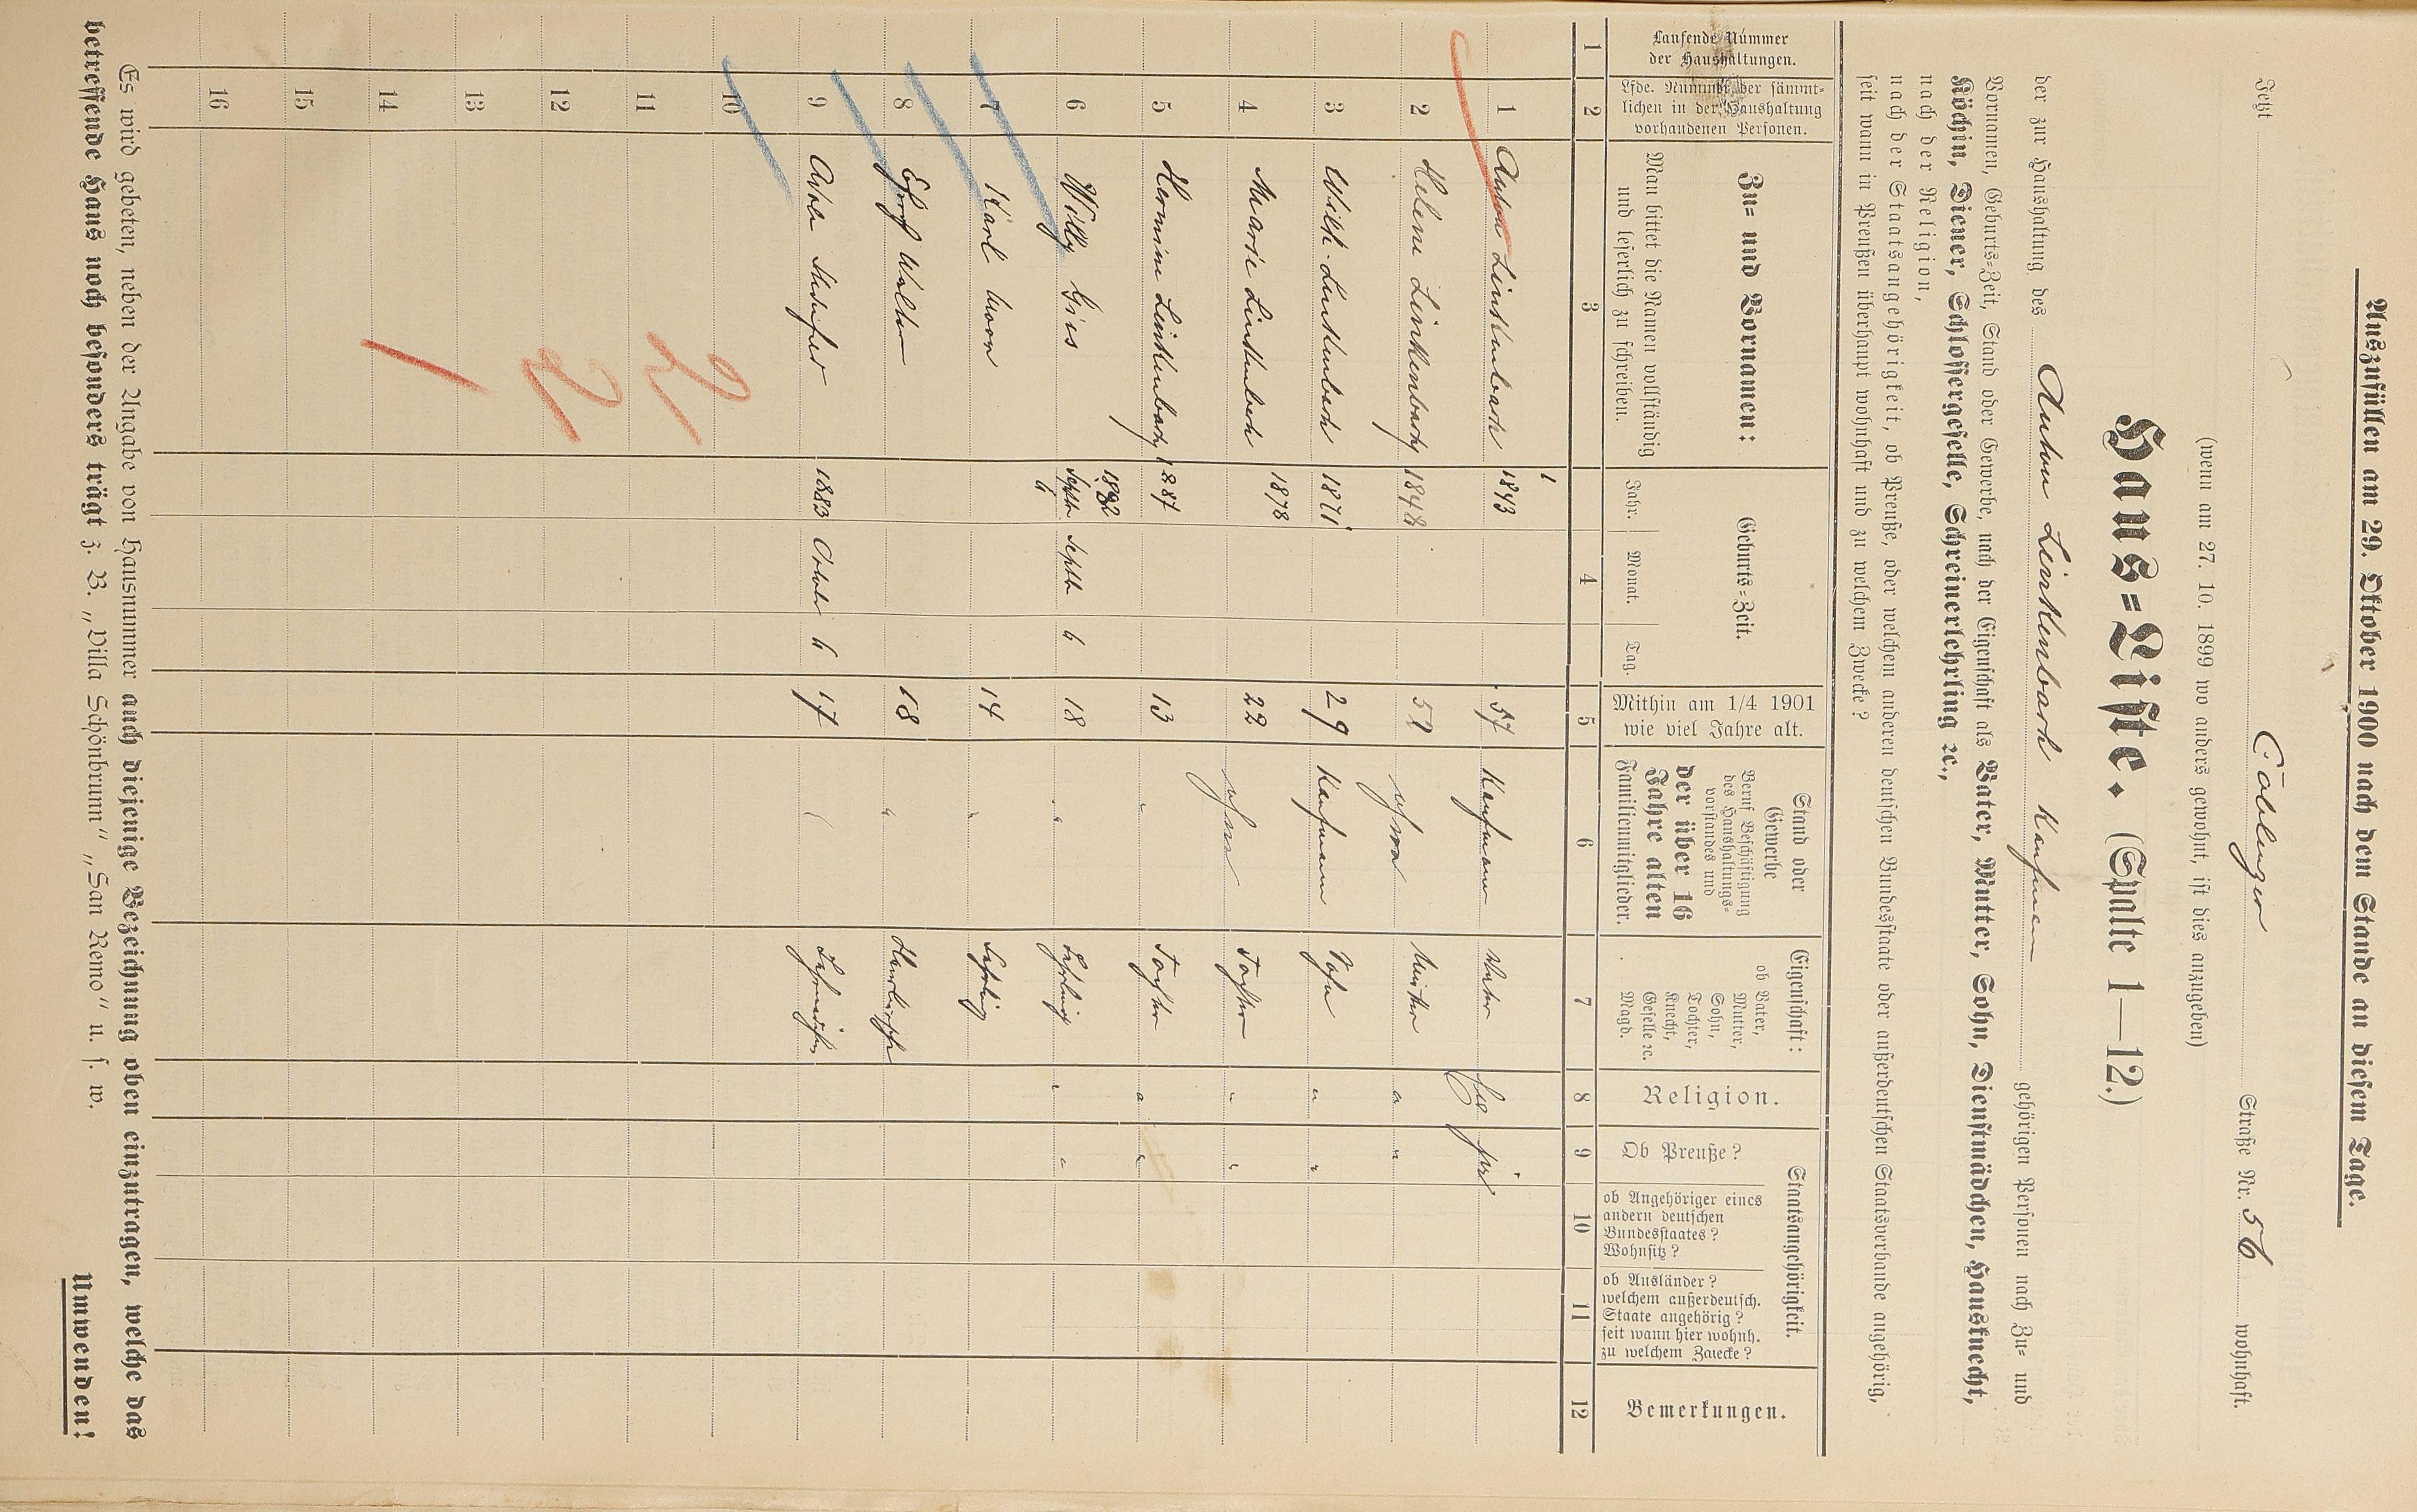 Auszufüllen am 29. Oktober 1900 nach dem Stande an diesem Tage.
Jetzt Coblenzer Straße Nr. 56 wohnhaft.
(wenn am 27. 10. 1899 wo anders gewohnt, ist dies anzugeben)
Haus=Liste. (Spalte 1—12.)
der zur Haushaltung des Anton Linkenbach Kaufmann gehörigen Personen nach Zu= und
Vornamen, Geburts=Zeit, Stand oder Gewerbe, nach der Eigenschaft als Vater, Mutter, Sohn, Dienstmädchen, Hausknecht,
Köchin, Diener, Schlossergeselle, Schreinerlehrling ꝛc.,
nach der Religion,
nach der Staatsangehörigkeit, ob Preuße, oder welchen anderen deutschen Bundesstaate oder außerdeutschen Staatsverbande angehörig,
seit wann in Preußen überhaupt wohnhaft und zu welchem Zwecke?
Laufende Nummer
der Haushaltungen.
Lfde. Nummer der sämmt=
lichen in der Haushaltung
vorhandenen Personen.
Zu= und Vornamen:
Man bittet die Namen vollständig
und leserlich zu schreiben.
Geburts=Zeit.
Jahr. Monat. Tag.
Mithin am 1/4 1901
wie viel Jahre alt.
Stand oder
Gewerbe
Beruf Beschäftigung
des Haushaltungs=
vorstandes und
der über 16
Jahre alten
Familienmitglieder.
Eigenschaft:
ob Vater,
Mutter,
Sohn,
Tochter,
Knecht,
Geselle ꝛc.
Magd.
Religion.
Staatsangehörigkeit.
Ob Preuße?
ob Angehöriger eines
andern deutschen
Bundesstaates?
Wohnsitz?
ob Ausländer?
welchem außerdeutsch.
Staate angehörig?
seit wann hier wohnh.
zu welchem Zwecke?
Bemerkungen.
1 2 3 4 5 6 7 8 9 10 11 12
1 Anton Linkenbach 1843 57 Kaufmann Vater
2 Helene Linkenbach 1848 52 ohne Mutter " "
3 Wilh. Linkenbach 1871 29 Kaufmann Sohn " "
4 Marie Linkenbach 1878 22 ohne Tochter " "
5 Hermine Linkenbach 1887 13 " Tochter " "
6 Willy Gies 1882 Septbr 6 18 " Lehrling " "
7 Karl 14 " Lehrling
8 18 "
9 1883 October 6 17
10
11
12
13
14
15
16
Es wird gebeten, neben der Angabe von Hausnummer auch diejenige Bezeichnung oben einzutragen, welche das
betreffende Haus noch besonders trägt z. B. „Villa Schönbrunn“ „San Remo“ u. s. w.
Umwenden!